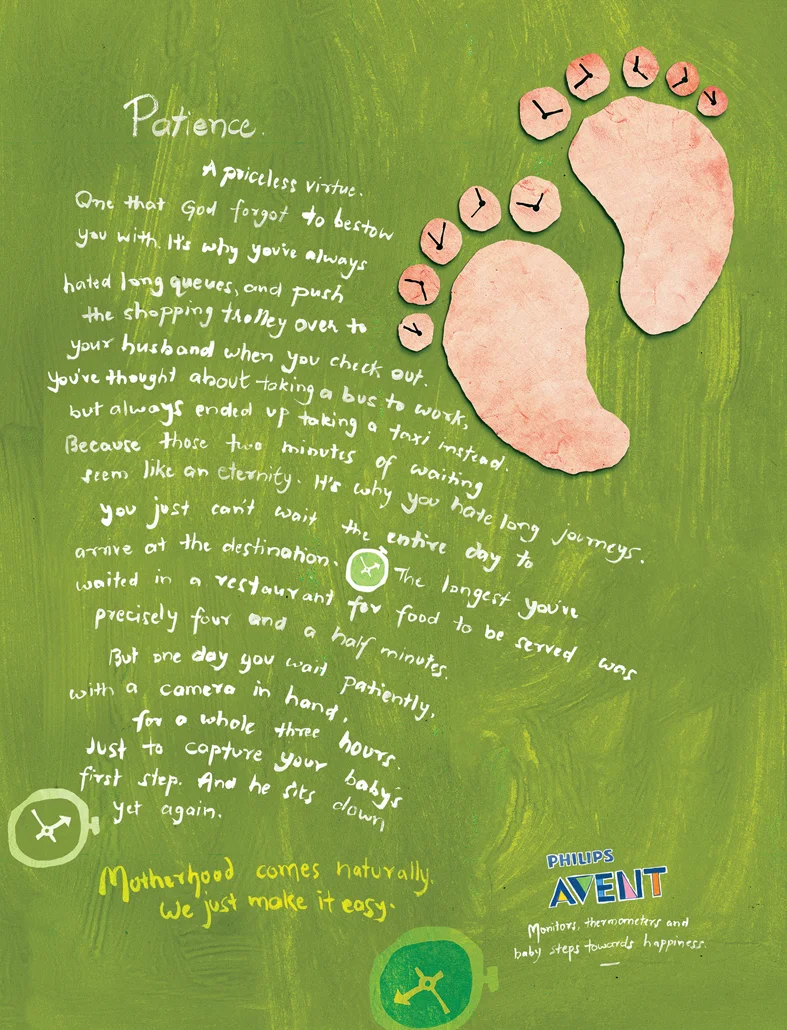 Patience.
A priceless virtue.
One that God forgot to bestow
you with. It's why you've always
hated long queues, and push
the shopping trolley over to
your husband when you check out.
You've thought about taking a bus to work,
but always ended up taking a taxi instead.
Because those two minutes of waiting
seem like an eternity. It's why you hate long journeys.
you just can't wait the entire day to
arrive at the destination. The longest you've
waited in a restaurant for food to be served was
precisely four and a half minutes.
But one day you wait patiently,
with a camera in hand,
for a whole three hours.
Just to capture your baby's
first step. And he sits down
yet again.
Motherhood comes naturally.
We just make it easy.
PHILIPS
AVENT
Monitors, thermometers and
baby steps towards happiness.